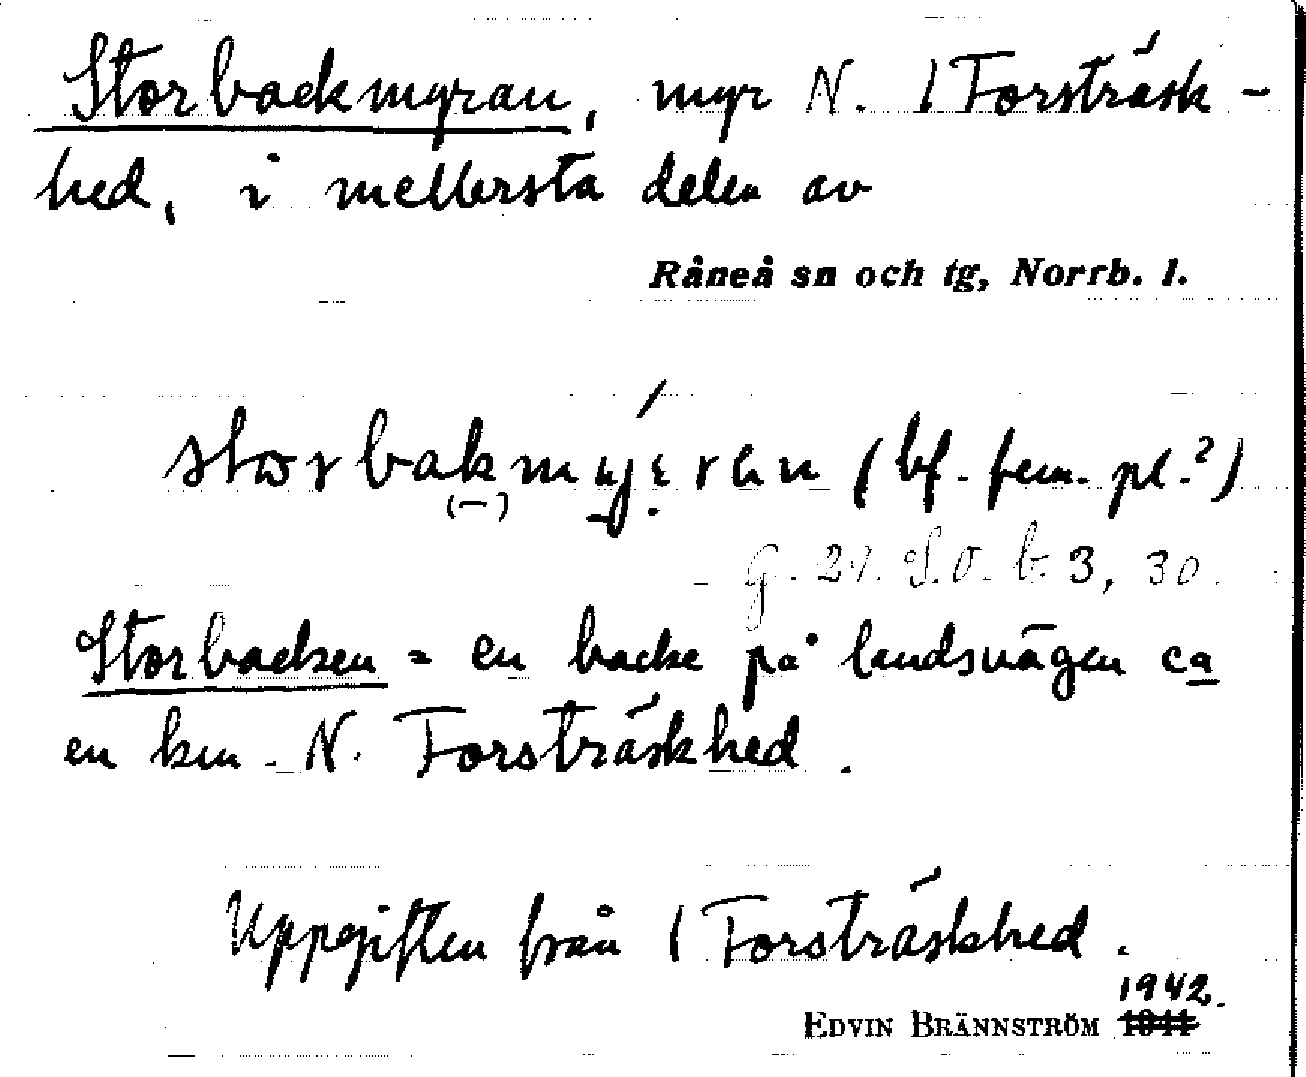 Storbackmyran, myr N. 1 Forsträsk-
hed, i mellersta delen av
Råneå sn och tg, Norrb. l.
(bf. fem. pl.?)
g. 21. S.O. b. 3, 30.
Storbacken = en backe på landsvägen ca
en km. N. Forsträskhed.
Uppgiften från 1 Forsträskhed.
1942.
EDVIN BRÄNNSTRÖM 1941